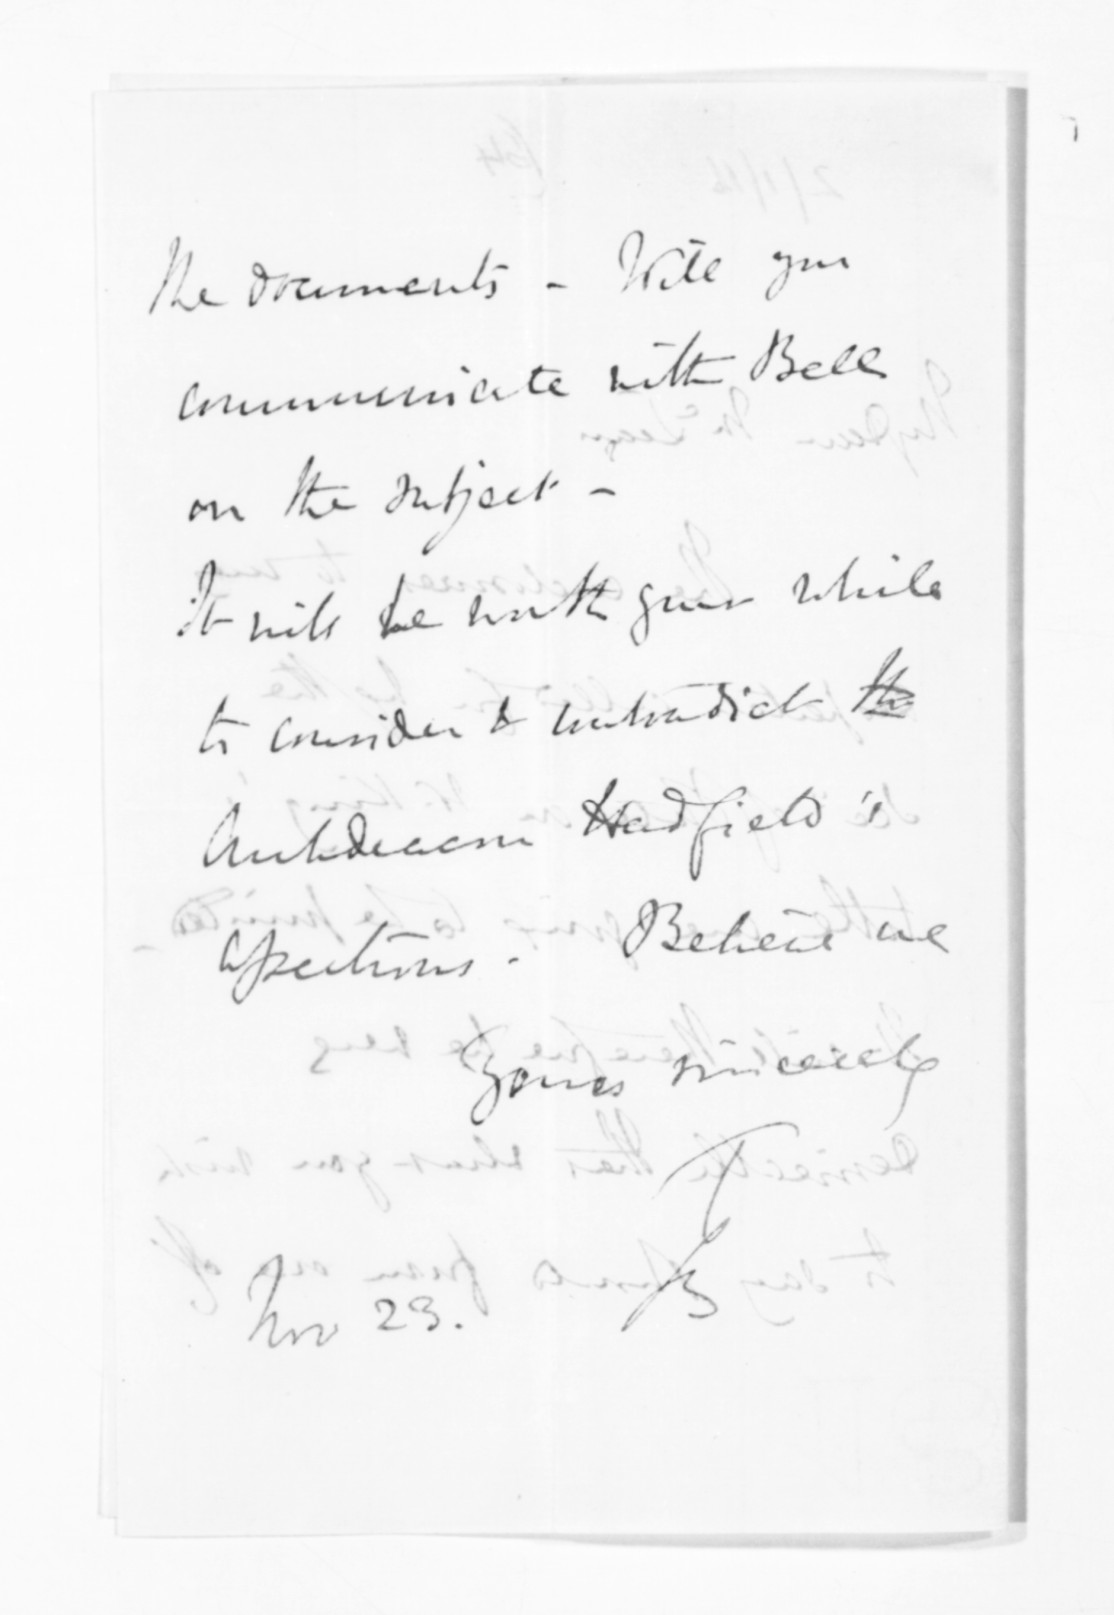 the documents - Will you
communicate with Bell
on the subject -
It will be worth your while
to consider & contradict the
Archdeacon Hadfield's
assertions - Believe me
Yours sincerely
Nov 23.